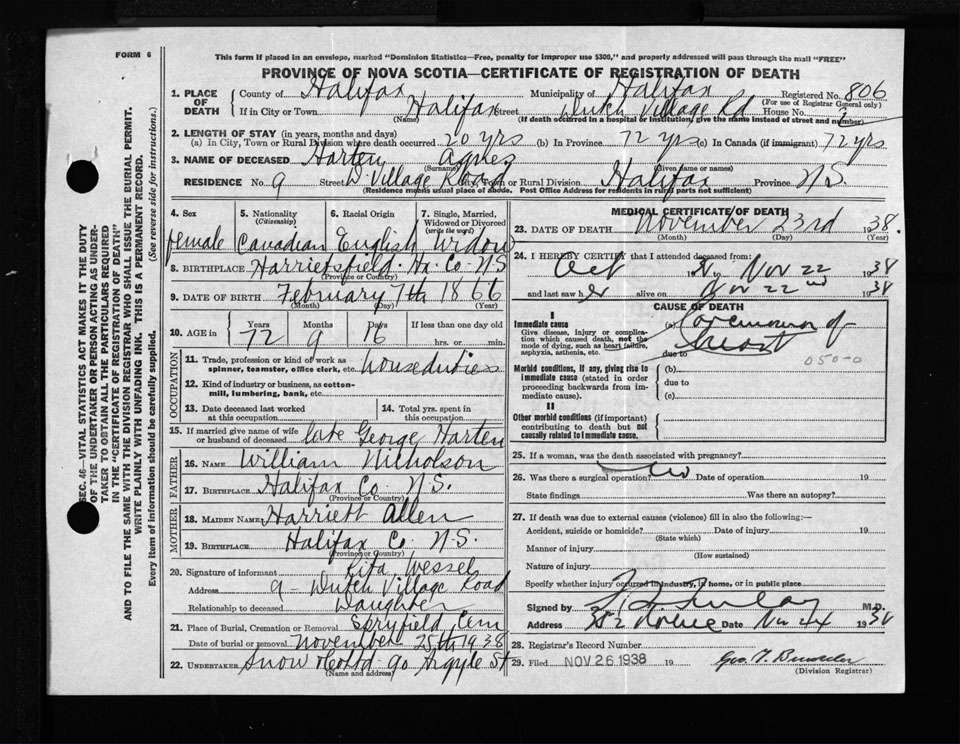 FORM 6
This form if placed in an envelope, marked "Dominion Statistics—Free, penalty for improper use $300," and properly addressed will pass through the mail "FREE"
PROVINCE OF NOVA SCOTIA—CERTIFICATE OF REGISTRATION OF DEATH
1. PLACE OF DEATH County of Halifax Municipality of Halifax Registered No. 806
(For use of Registrar General only)
If in City or Town Halifax Street Dutch Village Rd House No.
(Name) (If death occurred in a hospital or institution, give the name instead of street and number)
2. LENGTH OF STAY (in years, months and days)
(a) In City, Town or Rural Division where death occurred 20 yrs (b) In Province 72 yrs (c) In Canada (if immigrant) 72 yrs
3. NAME OF DECEASED Harten Agnes
(Surname) (Given name or names)
RESIDENCE No. 9 Street D. Village Road City, Town or Rural Division Halifax Province N.S.
(Residence means usual place of abode. Post Office Address for residents in rural parts not sufficient)
4. Sex female
5. Nationality (Citizenship) Canadian
6. Racial Origin English
7. Single, Married, Widowed or Divorced (write the word) Widow
8. BIRTHPLACE Harrietsfield. Hx. Co. N.S
(Province or Country)
9. DATE OF BIRTH February 7th 1866
(Month) (Day) (Year)
10. AGE in Years 72 Months 9 Days 16 If less than one day old
hrs. or min.
OCCUPATION
11. Trade, profession or kind of work as spinner, teamster, office clerk, etc. houseduties
12. Kind of industry or business, as cotton-mill, lumbering, bank, etc.
13. Date deceased last worked at this occupation
14. Total yrs. spent in this occupation
15. If married give name of wife or husband of deceased late George Harten
FATHER
16. NAME William Nicholson
17. BIRTHPLACE Halifax Co. N.S.
(Province or Country)
MOTHER
18. MAIDEN NAME Harriett Allen
19. BIRTHPLACE Halifax Co. N.S.
(Province or Country)
20. Signature of informant Rita Wessel
Address 9 - Dutch Village Road
Relationship to deceased Daughter
21. Place of Burial, Cremation or Removal Spryfield Cem
Date of burial or removal November 25th 1938
22. UNDERTAKER Snow & Co Ltd 90 Argyle St
(Name and address)
MEDICAL CERTIFICATE OF DEATH
23. DATE OF DEATH November 23rd 1938.
(Month) (Day) (Year)
24. I HEREBY CERTIFY that I attended deceased from:
Oct to Nov 22 1938
and last saw her alive on Nov 22nd 1938
CAUSE OF DEATH
I
Immediate cause (a) Carcinoma of
Give disease, injury or complication which caused death, not the mode of dying, such as heart failure, asphyxia, asthenia, etc.
due to
050-0
Morbid conditions, if any, giving rise to immediate cause (stated in order proceeding backwards from immediate cause).
(b)
due to
(c)
II
Other morbid conditions (if important) contributing to death but not causally related to immediate cause.
25. If a woman, was the death associated with pregnancy?
26. Was there a surgical operation? No Date of operation 19
State findings Was there an autopsy?
27. If death was due to external causes (violence) fill in also the following:—
Accident, suicide or homicide? Date of injury 19
(State which)
Manner of injury
(How sustained)
Nature of injury
Specify whether injury occurred in industry, in home, or in public place
Signed by M.D.
Address Date Nov 24 1938
28. Registrar's Record Number
29. Filed NOV 26 1938 19
(Division Registrar)
SEC. 46—VITAL STATISTICS ACT MAKES IT THE DUTY
OF THE UNDERTAKER OR PERSON ACTING AS UNDER-
TAKER TO OBTAIN ALL THE PARTICULARS REQUIRED
IN THE "CERTIFICATE OF REGISTRATION OF DEATH"
AND TO FILE THE SAME WITH THE DIVISION REGISTRAR WHO SHALL ISSUE THE BURIAL PERMIT.
WRITE PLAINLY WITH UNFADING INK. THIS IS A PERMANENT RECORD.
Every item of information should be carefully supplied. (See reverse side for instructions.)